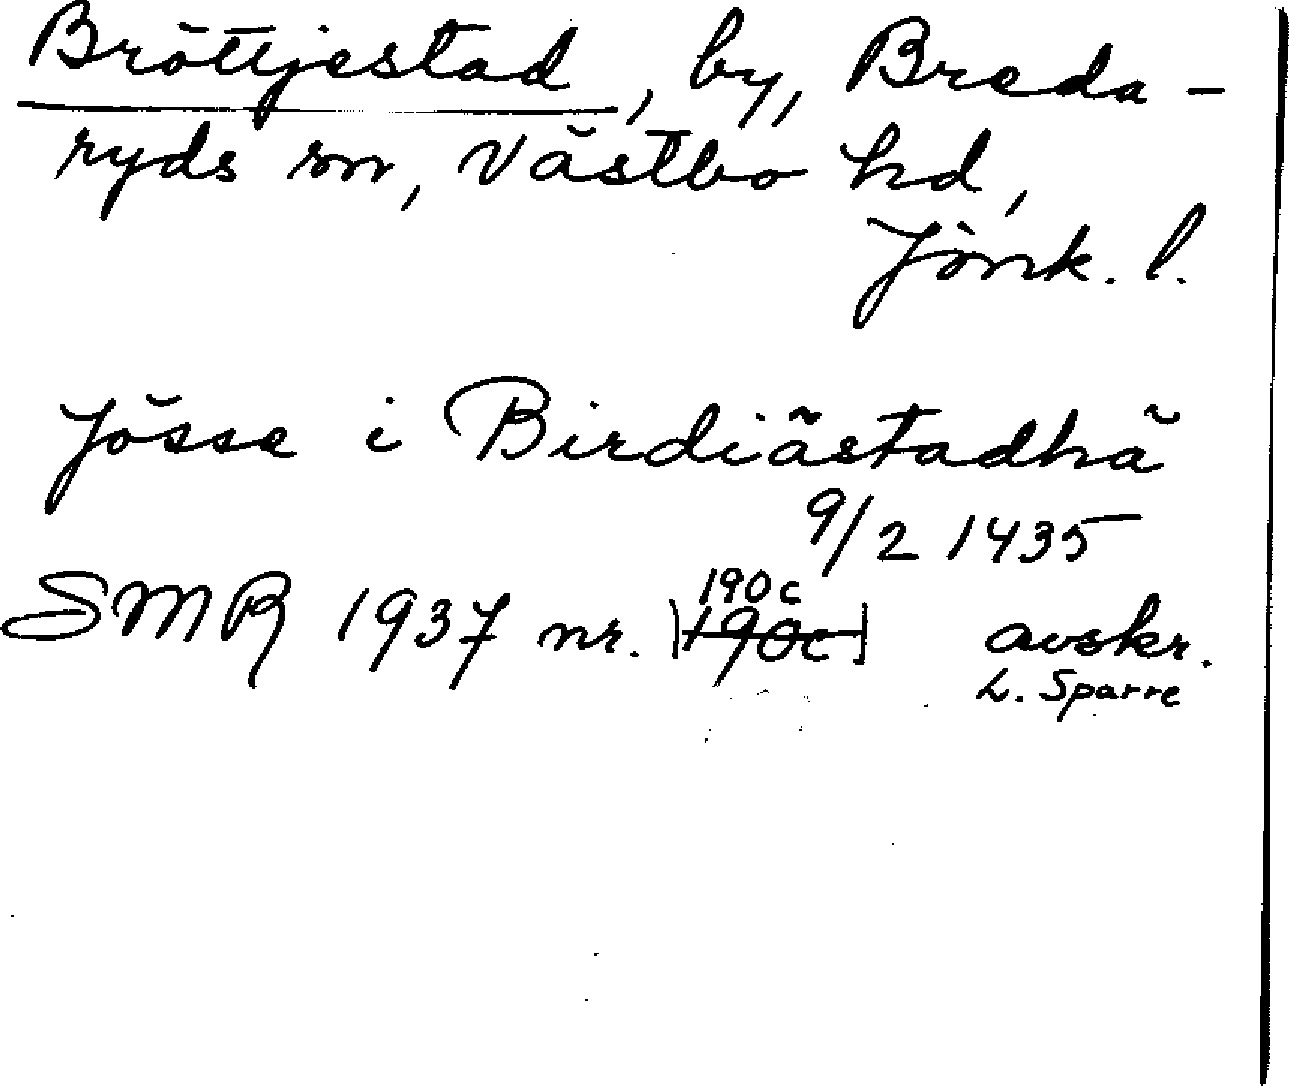 Bröttjestad, by, Breda-
ryds sn, Västbo hd,
Jönk. l.
Jösse i Birdiästadhä
9/2 1435
190c
SMR 1937 nr. [190c] avskr.
L. Sparre